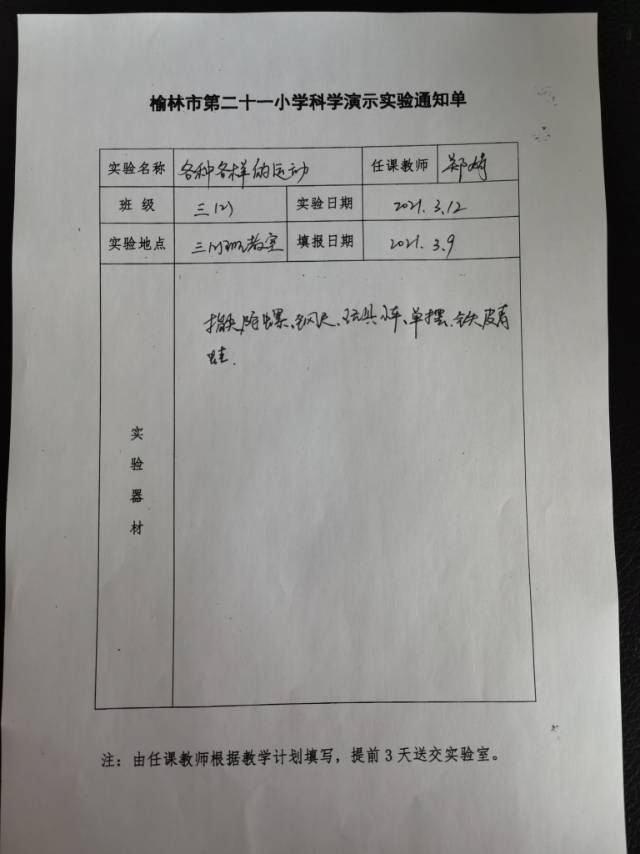 榆林市第二十一小学科学演示实验通知单
实验名称 各种各样的运动 任课教师 郑婷
班 级 三(2) 实验日期 2021.3.12
实验地点 三(2)班教室 填报日期 2021.3.9
实验器材
陀螺、钢尺、玩具小车、单摆、铁皮青
蛙.
注：由任课教师根据教学计划填写，提前3天送交实验室。